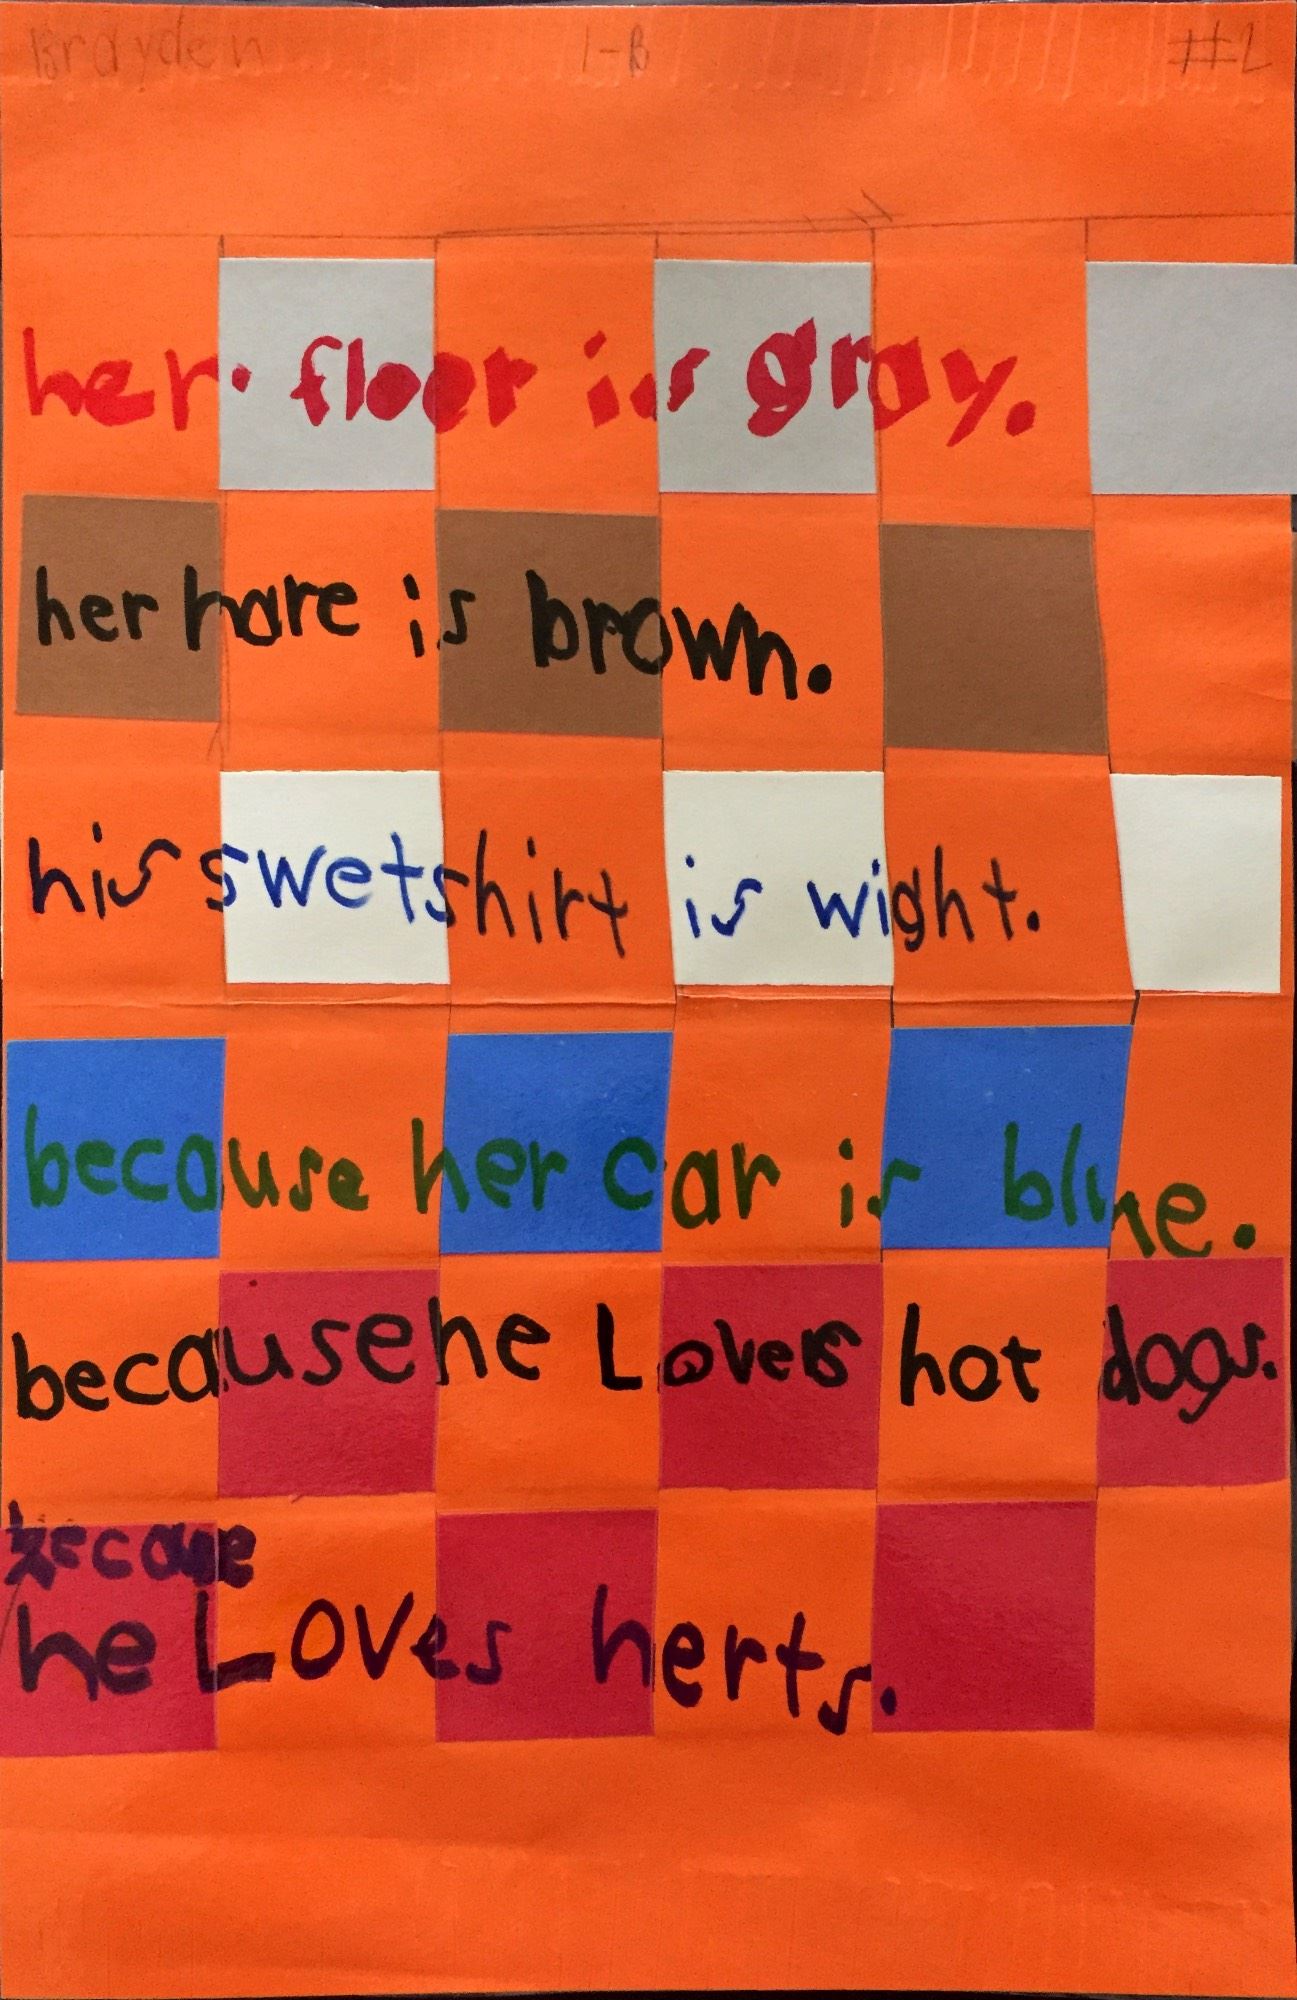 Brayden 1-B #2
her. floor is gray.
her hare is brown.
his swetshirt is wight.
because her car is blue.
because he Loves hot dogs.
becaue
he Loves herts.